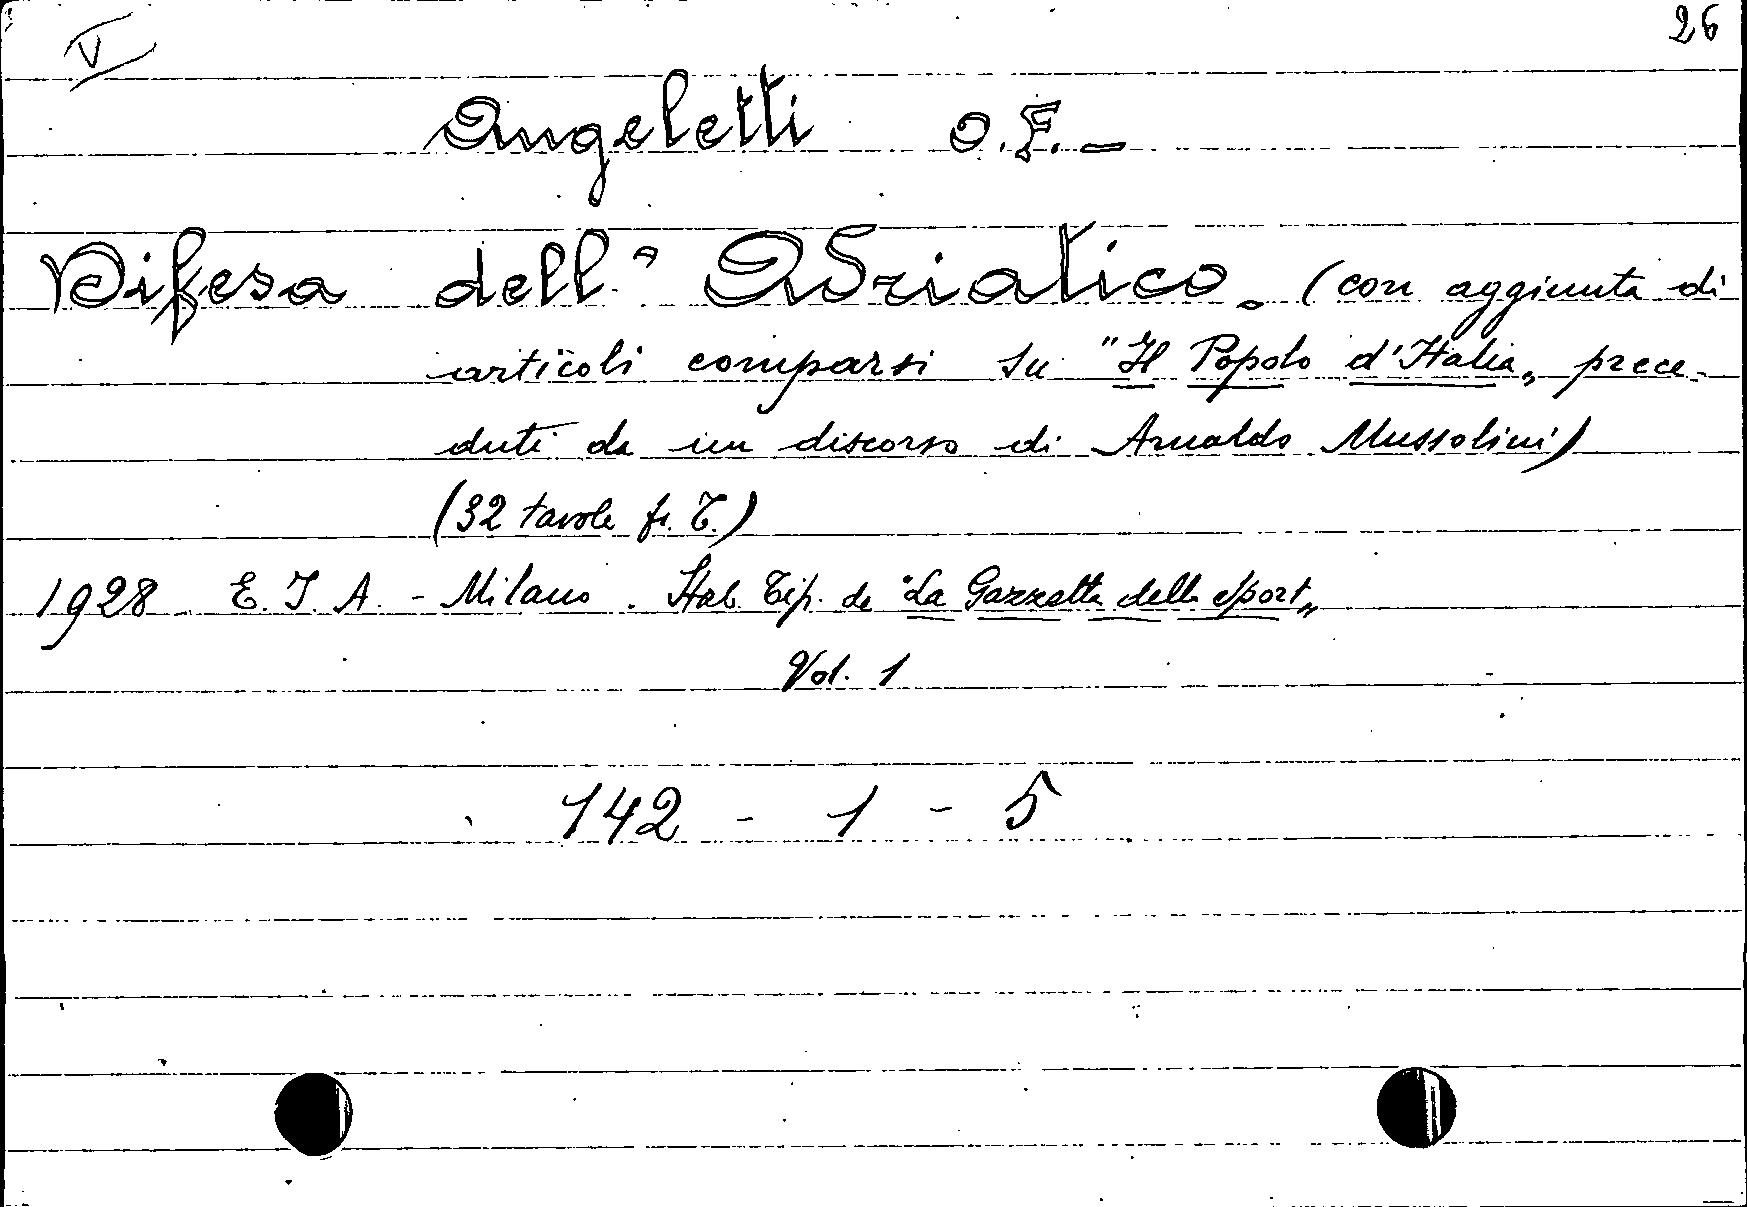 V 26
Angeletti O.F.-
Difesa dell' Adriatico. (con aggiunta di
articoli comparsi su "Il Popolo d'Italia„ prece-
duti da un discorso di Arnaldo Mussolini)
(32 tavole fr. T.)
1928 E. I. A. - Milano. Stab. Tip. de "La Gazzetta dello Sport„
Vol. 1
142 - 1 - 5